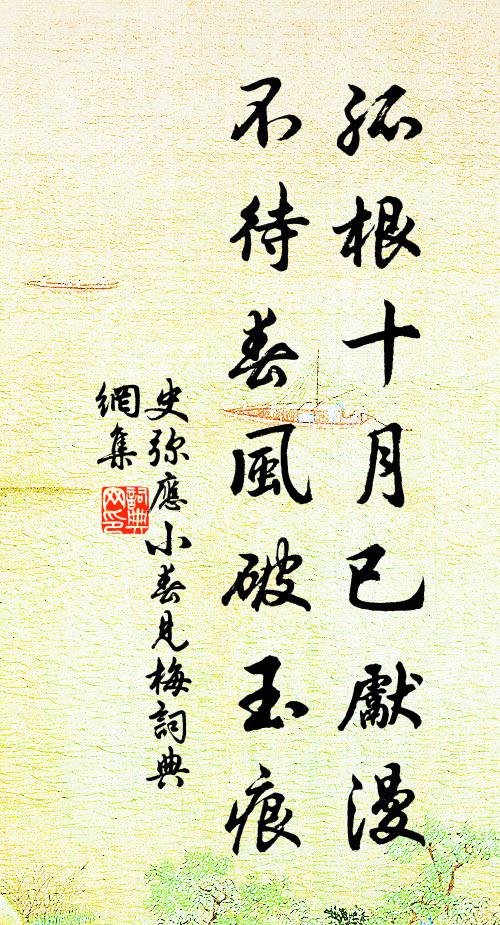 孤根十月已獻漫
不待春風破玉痕
史弥應小春見梅詞典
網集
詞典
网印